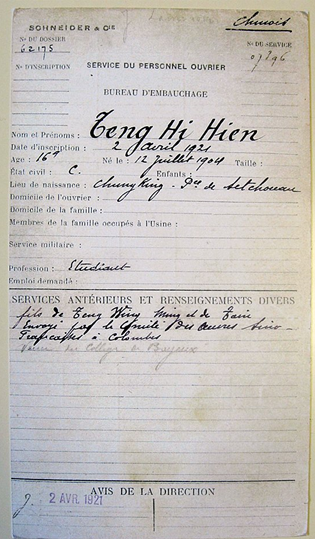 Chinois
SCHNEIDER & CIE
No DU DOSSIER
62175
No DU SERVICE
07896
No D'INSCRIPTION
SERVICE DU PERSONNEL OUVRIER
BUREAU D'EMBAUCHAGE
Nom et Prénoms : Teng Hi Hien
Date d'inscription : 2 avril 1921
Age : 16 Né le : 12 Juillet 1904 Taille :
État civil : C. Enfants :
Lieu de naissance : Chung King - Pce de Setchouean
Domicile de l'ouvrier :
Domicile de la famille :
Membres de la famille occupés à l'Usine :
Service militaire :
Profession : Etudiant
Emploi demandé :
SERVICES ANTÉRIEURS ET RENSEIGNEMENTS DIVERS
fils de Teng Wing Ming et de Tain
Envoyé par le Comité des œuvres Sino-
Françaises à Colombes
Venu du Collège de Bayeux
AVIS DE LA DIRECTION
2 AVR. 1921